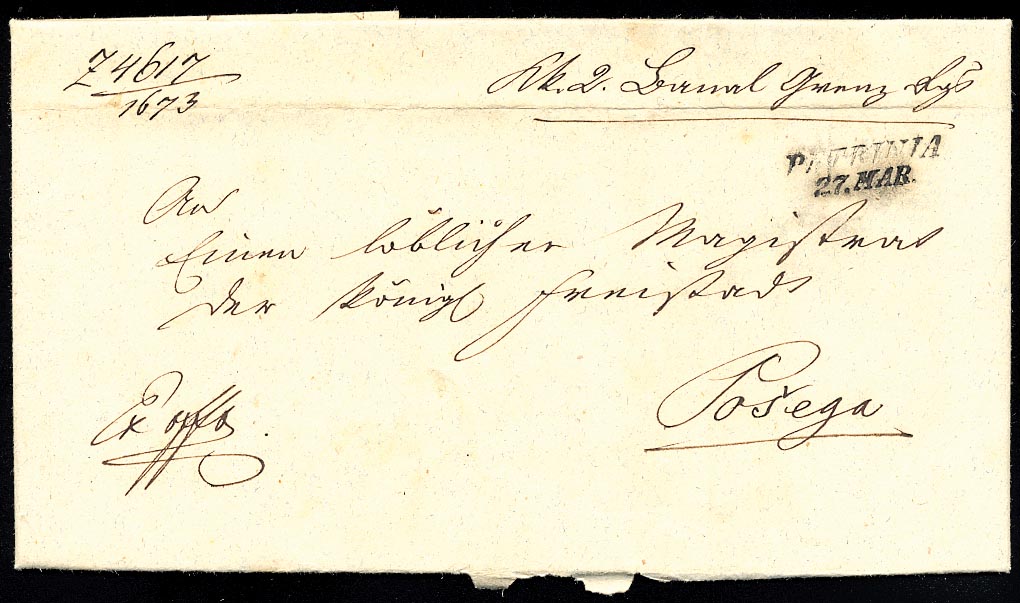 Z 4617
1673
Kk. 2. Banal Grenz Rgs
PETRINIA
27. MAR.
An
Einen löblichen Magistrat
der königl Freistadt
Ex offo.
Pošega